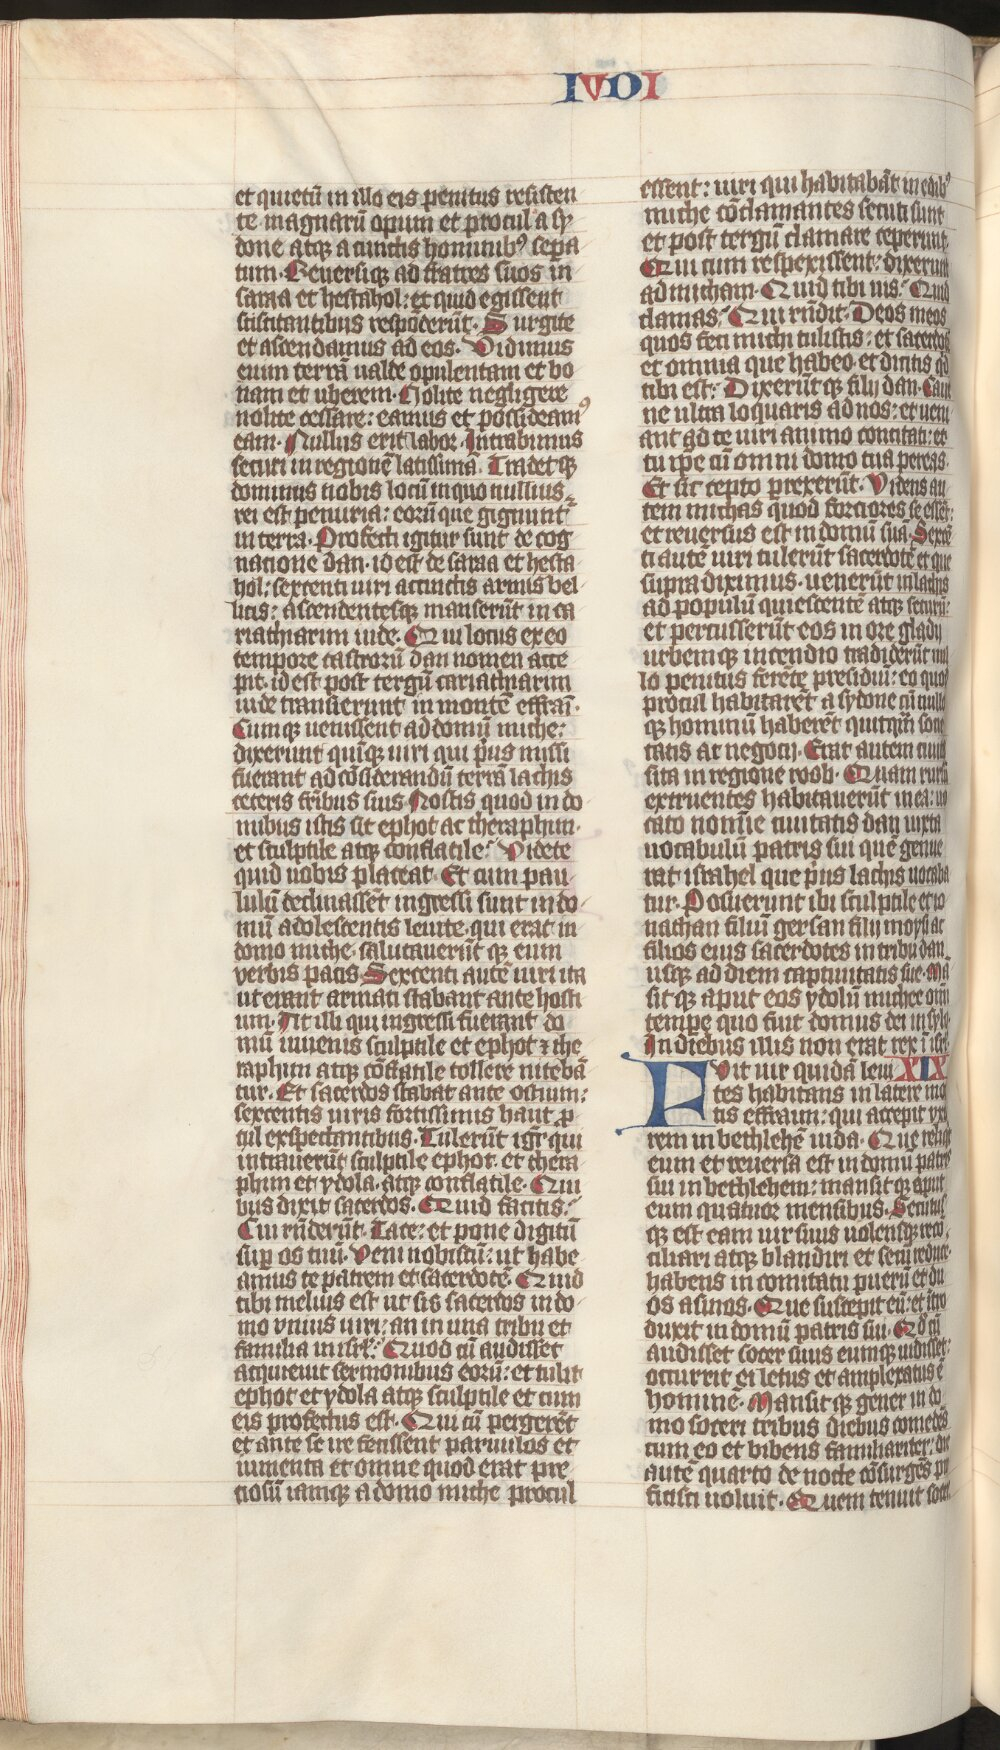 IVDI
et quietū in illo eis penitus resisten
te magnarū opum et procul a sy
done atqȝ a cunctis hominibꝰ sepa
tum. Reuersiqȝ ad fratres suos in
saraa et hestahol: et quid egissent
sciscitantibus respōderūt. Surgite
et ascendamus ad eos. Vidimus
enim terrā ualde opulentam et bo
nam et uberem. Nolite negligere
nolite cessare: eamus et possideamꝰ
eam. Nullus erit labor. Intrabimus
securi in regionē latissimā. Tradetqȝ
dominus nobis locū in quo nullius
rei est penuria: eorū que gignunt̄
in terra. Profecti igitur sunt de cog
natione dan. id est de saraa et hesta
hol: sexcenti uiri accincti armis bel
licis: ascendentesqȝ manserūt in ca
riathiarim iude. Qui locus ex eo
tempore castrorū dan nomen acce
pit. id est post tergū cariathiarim
inde transierunt in montē effraī.
Cumqȝ uenissent ad domū miche:
dixerunt quīqȝ uiri qui p̄us missi
fuerant ad cōsiderandū terrā lachis
ceteris frībus suis Nostis quod in do
mibus istis sit ephot ac theraphin.
et sculptile atqȝ conflatile: Videte
quid uobis placeat. Et cum pau
lulū declinassēt ingressi sunt in do
mū adolescentis leuite. qui erat in
domo miche. salutauerūt qȝ eum
verbis pacis. Sexcenti autē uiri ita
ut erant armati stabant ante hosti
um. At illi qui ingressi fuerant do
mū iuuenis sculptile et ephot ⁊ the
raphin atqȝ cōflatile tollere nitebā
tur. Et sacerdos stabat ante ostium:
sexcentis uiris fortissimis haut p̱
cul exspectantibus. Tulerūt igr̄ qui
intrauerūt sculptile ephot. et thera
phim et ydola. atqȝ conflatile. Qui
bus dixit sacerdos. Quid facitis:
Cui rn̄derūt. Tace: et pone digitū
sup̱ os tuū. Veni nobiscū: ut habe
amus te patrem et sacerdotē. Quid
tibi melius est ut sis sacerdos in do
mo vnius uiri: an in una tribu et
familia in isrl̄: Quod cū audisset
acquieuit sermonibus eorū: et tulit
ephot et ydola atqȝ sculptile et cum
eis profectus est. Qui cū pergerēt
et ante se ire fecissent paruulos et
iumenta et omne quod erat pre
ciosū iamqȝ a domo miche procul
essent: uiri qui habitabāt in edibꝰ
miche cōclamantes secuti sunt
et post tergū clamare ceperunt.
Qui cum respexissent: dixerunt
ad micham. Quid tibi uis: Quid
clamas: Qui rn̄dit. Deos meos
quos feci michi tulistis: et sacerdotē
et omnia que habeo. et dicitis qd̄
tibi est: Dixerūtqȝ filij dan. Caue
ne ultra loquaris ad nos: et ueni
ant ad te uiri animo concitati: et
tu ip̄e cū omni domo tua pereas.
Et sic cepto ꝑrexerūt. Videns au
tem michas quod forciores se essēt:
et reuersus est in domū suā. Sexcē
ti autē uiri tulerūt sacerdotē et que
supra diximus. uenerūt in lachis
ad populū quiescentē atqȝ securū:
et percusserūt eos in ore gladij
urbemqȝ incendio tradiderūt nul
lo penitus ferēte presidiū: eo quod
procul habitarēt a sydone cū nullo
qȝ hominū haberēt quitqm̄ socie
tatis ac negocij. Erat autem ciuit
sita in regione roob. Quam rursū
extruentes habitauerūt in ea: uo
cato nomīe ciuitatis dan iuxta
uocabulū patris sui quē genue
rat israhel que p̄us lachis uocaba
tur. Posuerunt ibi sculptile et io
nathan filiū gersan filij moysi ac
filios eius sacerdotes in tribu dan
usqȝ ad diem captiuitatis sue. Mā
sit qȝ aput eos ydolū miche om̄i
tempe quo fuit domus dei in sylo.
In diebus illis non erat rex ī isrl̄.
Fuit uir quidā leui XIX
tes habitans in latere mō
tis effraim: qui accepit vxo
rem in bethlehē iuda. Que reliq̄t
eum et reuersa est in domū patris
sui in bethlehem: mansit qȝ aput
eum quatuor mensibus. Secutus
qȝ est eam uir suus uolensqȝ reco
ciliari atqȝ blandiri et secū reduce.
habens in comitatu puerū et du
os asinos. Que suscepit eū: et ītro
duxit in domū patris sui. Qd̄ cū
audisset socer eius eumqȝ uidisset:
occurrit ei letus et amplexatus ē
hominē. Mansitqȝ gener in do
mo soceri tribus diebus comedēs
cum eo et bibens familiariter: die
autē quarto de nocte cōsurgēs p̱
ficisci uoluit. Quem tenuit socer